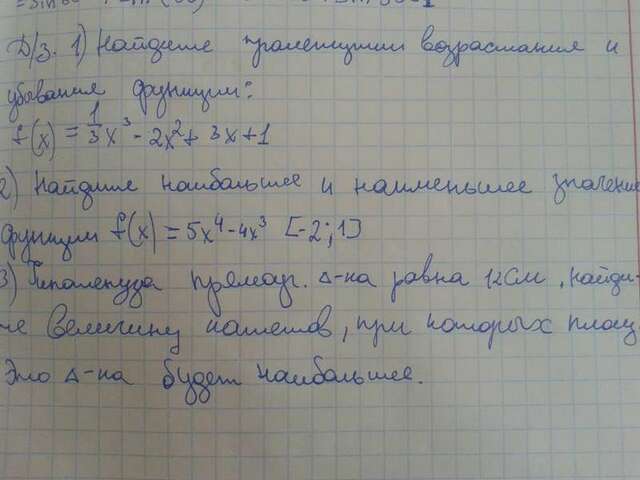 Д/з. 1) Найдите промежутки возрастания и
убывания функции:
f(x) = 1/3 x³ - 2x² + 3x + 1
2) Найдите наибольшее и наименьшее значение
функции f(x) = 5x⁴ - 4x³ [-2; 1]
3) Гипотенуза прямоуг. Δ-ка равна 12см, найди-
те величину катетов, при которых площ
этого Δ-ка будет наибольшее.